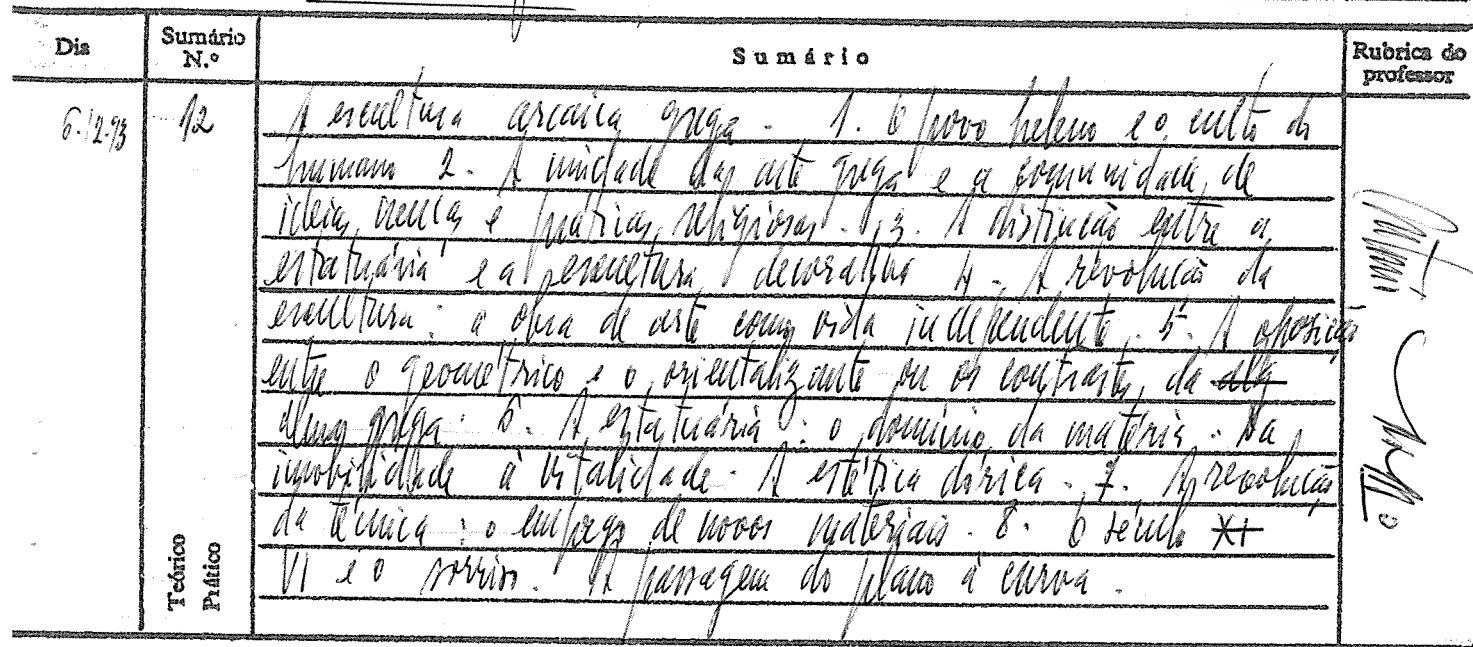 Dia Sumário N.º Sumário Rubrica do professor
6-12-93 12 A escultura arcaica grega. 1. O povo heleno e o culto do
humano 2. A unidade das arte grega e a comunidade de
ideias, crenças e práticas religiosas. 3. A distinção entre a
estatuária e a escultura decorativa 4. A revolução da
escultura: a obra de arte como vida independente. 5. A oposição
entre o geométrico e o orientalizante ou os contrastes da
alma grega. 6. A estatuária: o domínio da matéria. Da
imobilidade à vitalidade. A estética dórica. 7. A revolução
da técnica: o emprego de novos materiais. 8. O século XI
VI e o sorriso. A passagem do plano à curva.
Teórico
Prático